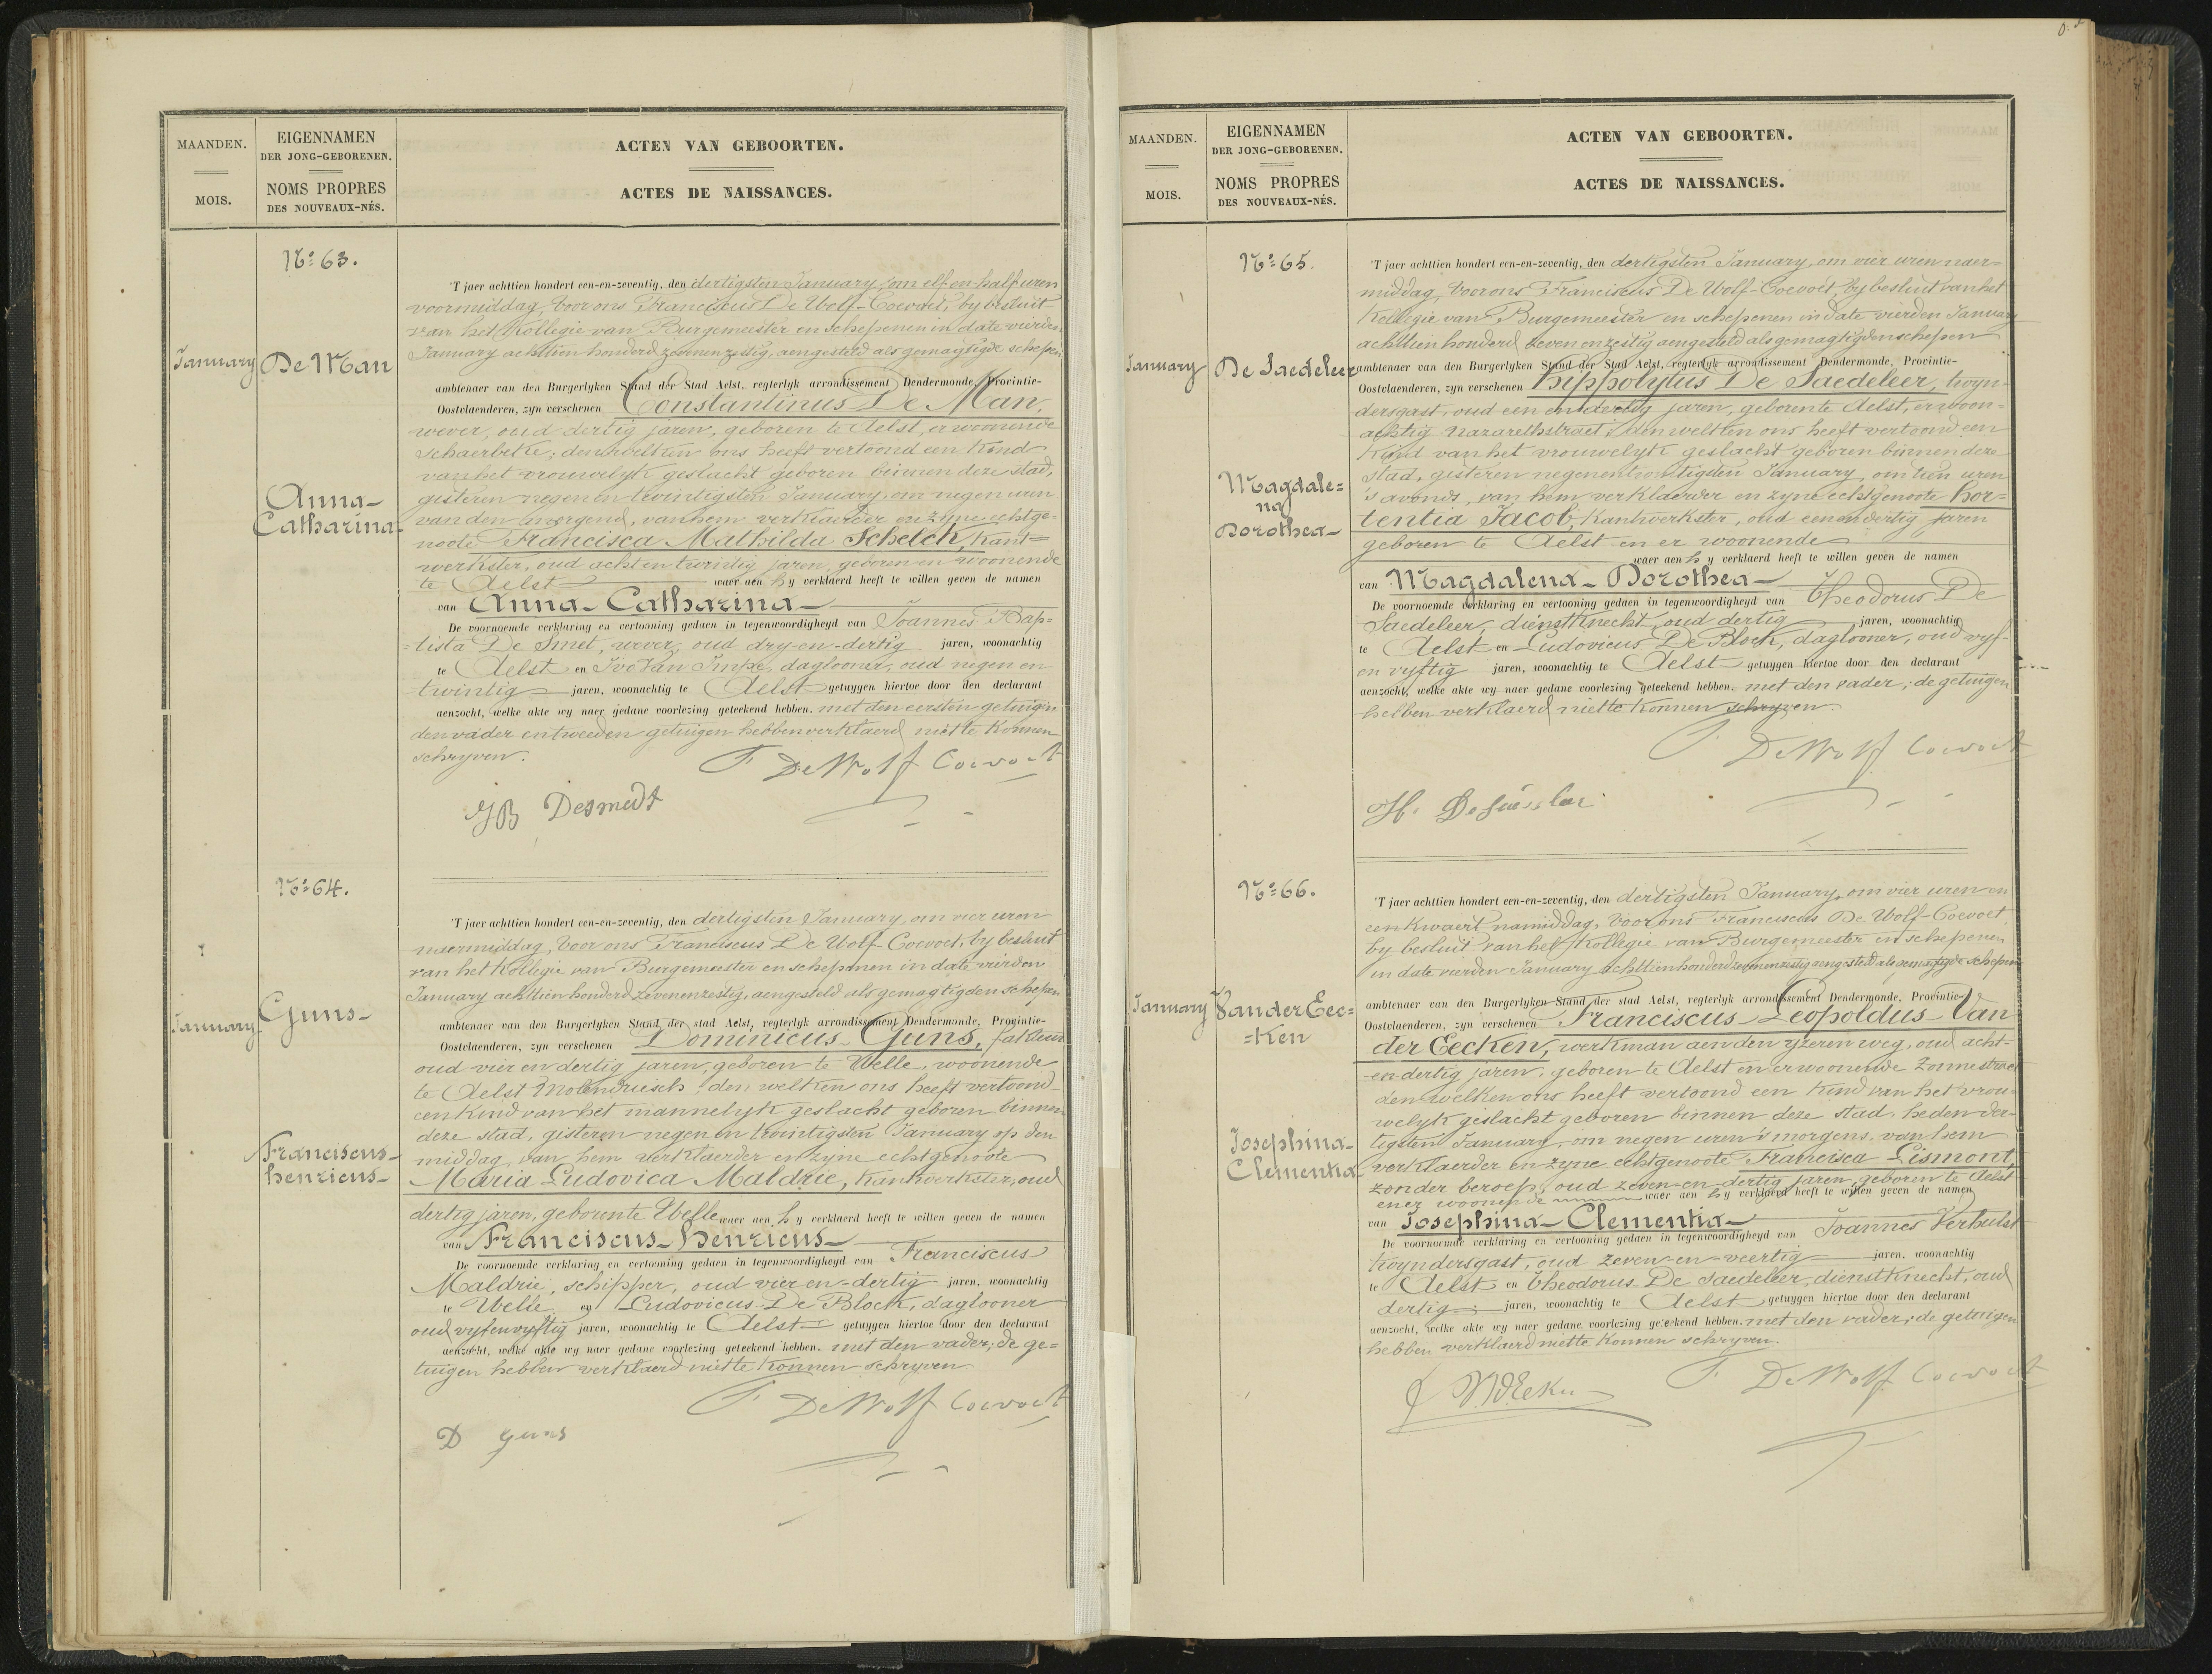 MAANDEN.
MOIS.
EIGENNAMEN
DER JONG-GEBORENEN.
NOMS PROPRES
DES NOUVEAUX-NÉS.
ACTEN VAN GEBOORTEN.
ACTES DE NAISSANCES.
No: 63.
January
De Man
Anna-
Catharina-
'T jaer achttien hondert een-en-zeventig, den dertigsten January, om elf en half uren
voormiddag, Voor ons Franciscus De Wolf-Coevoet, by besluit
van het Kollegie van Burgemeester en schepenen in date vierden
January achttien honderd zevenenzestig, aengesteld als gemagtigde schepen
ambtenaer van den Burgerlyken Stand der Stad Aelst, regterlyk arrondissement Dendermonde, Provintie-
Oostvlaenderen, zyn verschenen Constantinus De Man,
wever, oud dertig jaren, geboren te Aelst, er woonende
Schaerbeke; den welken ons heeft vertoond een Kind
van het vrouwelyk geslacht geboren binnen deze stad,
gisteren negen en twintigsten January, om negen uren
van den morgend, van hem verklaerder en zyne echtge-
noote Francisca Mathilda Schelck, Kant=
werkster, oud acht en twintig jaren, geboren en woonende
te Aelst waer aen hy verklaerd heeft te willen geven de namen
van Anna-Catharina-
De voornoemde verklaring en vertooning gedaen in tegenwoordigheyd van Joannes Bap=
=tista De Smet, wever, oud dry-en-dertig jaren, woonachtig
te Aelst en Ivo Van Impe, daglooner, oud negen en
twintig jaren, woonachtig te Aelst getuygen hiertoe door den declarant
aenzocht, welke akte wy naer gedane voorlezing geteekend hebben. met den eersten getuigen
den vader en tweeden getuigen hebben verklaerd niet te Konnen
schryven.
F. De Wolf Coevoet
JB Desmedt
No: 64.
January
Guns-
Franciscus-
henricus-
'T jaer achttien hondert een-en-zeventig, den dertigsten January, om vier uren
naermiddag, Voor ons Franciscus De Wolf-Coevoet, by besluit
van het Kollegie van Burgemeester en schepenen in date vierden
January achttien honderd zevenenzestig, aengesteld als gemagtigden schepen
ambtenaer van den Burgerlyken Stand der stad Aelst, regterlyk arrondissement Dendermonde, Provintie-
Oostvlaenderen, zyn verschenen Dominicus Guns,
oud vier en dertig jaren, geboren te Welle, woonende
te Aelst Molendriesch; den welken ons heeft vertoond
een Kind van het mannelyk geslacht geboren binnen
deze stad, gisteren negen en twintigsten January op den
middag, van hem verklaerder en zyne echtgenoote
Maria Ludovica Maldrie, Kantwerkster, oud
dertig jaren, geboren te Welle waer aen hy verklaerd heeft te willen geven de namen
van Franciscus-henricus-
De voornoemde verklaring en vertooning gedaen in tegenwoordigheyd van Franciscus
Maldrie, schipper, oud vier en-dertig jaren, woonachtig
te Welle en Ludovicus De Block, daglooner
oud vyfenvyftig jaren, woonachtig te Aelst getuygen hiertoe door den declarant
aenzocht, welke akte wy naer gedane voorlezing geteekend hebben. met den vader; de ge=
tuigen hebben verklaerd niet te konnen schryven.
F. De Wolf Coevoet
D Guns
MAANDEN.
MOIS.
EIGENNAMEN
DER JONG-GEBORENEN.
NOMS PROPRES
DES NOUVEAUX-NÉS.
ACTEN VAN GEBOORTEN.
ACTES DE NAISSANCES.
No: 65.
January
De Saedeleer
Magdale=
na
Dorothea-
'T jaer achttien hondert een-en-zeventig, den dertigsten January, om vier uren naer=
middag, Voor ons Franciscus De Wolf-Coevoet by besluit van het
Kollegie van Burgemeester en schepenen in date vierden January
achttien honderd zeven en zestig aengesteld als gemagtigden schepen
ambtenaer van den Burgerlyken Stand der Stad Aelst, regterlyk arrondissement Dendermonde, Provintie-
Oostvlaenderen, zyn verschenen hippolytus De Saedeleer, twyn-
dersgast, oud een en dertig jaren, geboren te Aelst, er woon=
achtig Nazarethstraet; den welken ons heeft vertoond een
Kind van het vrouwelyk geslacht geboren binnen deze
stad, gisteren negenentwintigsten January, om tien uren
's avonds, van hem verklaerder en zyne echtgenoote hor=
tentia Jacob, Kantwerkster, oud een en dertig jaren
geboren te Aelst en er woonende
waer aen hy verklaerd heeft te willen geven de namen
van Magdalena-Dorothea-
De voornoemde verklaring en vertooning gedaen in tegenwoordigheyd van Theodorus De
Saedeleer, dienstknecht, oud dertig jaren, woonachtig
te Aelst en Ludovicus De Block, daglooner, oud vyf-
en vyftig jaren, woonachtig te Aelst getuygen hiertoe door den declarant
aenzocht, welke akte wy naer gedane voorlezing geteekend hebben. met den vader; de getuigen
hebben verklaerd niet te konnen schryven.
F. De Wolf Coevoet
No: 66.
January
Van der Eec=
=ken
Josephina-
Clementia-
'T jaer achttien hondert een-en-zeventig, den dertigsten January, om vier uren en
een kwaert namiddag, Voor ons Franciscus De Wolf-Coevoet
by besluit van het Kollegie van Burgemeester en schepenen
in date vierden January achttienhonderd zevenenzestig aengesteld als gemagtigde schepen
ambtenaer van den Burgerlyken Stand der stad Aelst, regterlyk arrondissement Dendermonde, Provintie-
Oostvlaenderen, zyn verschenen Franciscus Leopoldus Van
der Eecken, werkman aen den yzeren weg, oud acht-
en dertig jaren, geboren te Aelst en er woonende Zonnestraet
den welken ons heeft vertoond een Kind van het vrou-
welyk geslacht geboren binnen deze stad, heden der-
tigsten January, om negen uren 's morgens, van hem
verklaerder en zyne echtgenoote Francisca Lismont,
zonder beroep, oud zeven-en-dertig jaren, geboren te Aelst
en er woonende waer aen hy verklaerd heeft te willen geven de namen
van Josephina-Clementia-
De voornoemde verklaring en vertooning gedaen in tegenwoordigheyd van Joannes Verhulst
twyndersgast, oud zeven-en-veertig jaren, woonachtig
te Aelst en Theodorus De Saedeleer, dienstknecht, oud
dertig jaren, woonachtig te Aelst getuygen hiertoe door den declarant
aenzocht, welke akte wy naer gedane voorlezing geteekend hebben. met den vader; de getuigen
hebben verklaerd niet te konnen schryven.
F. De Wolf Coevoet